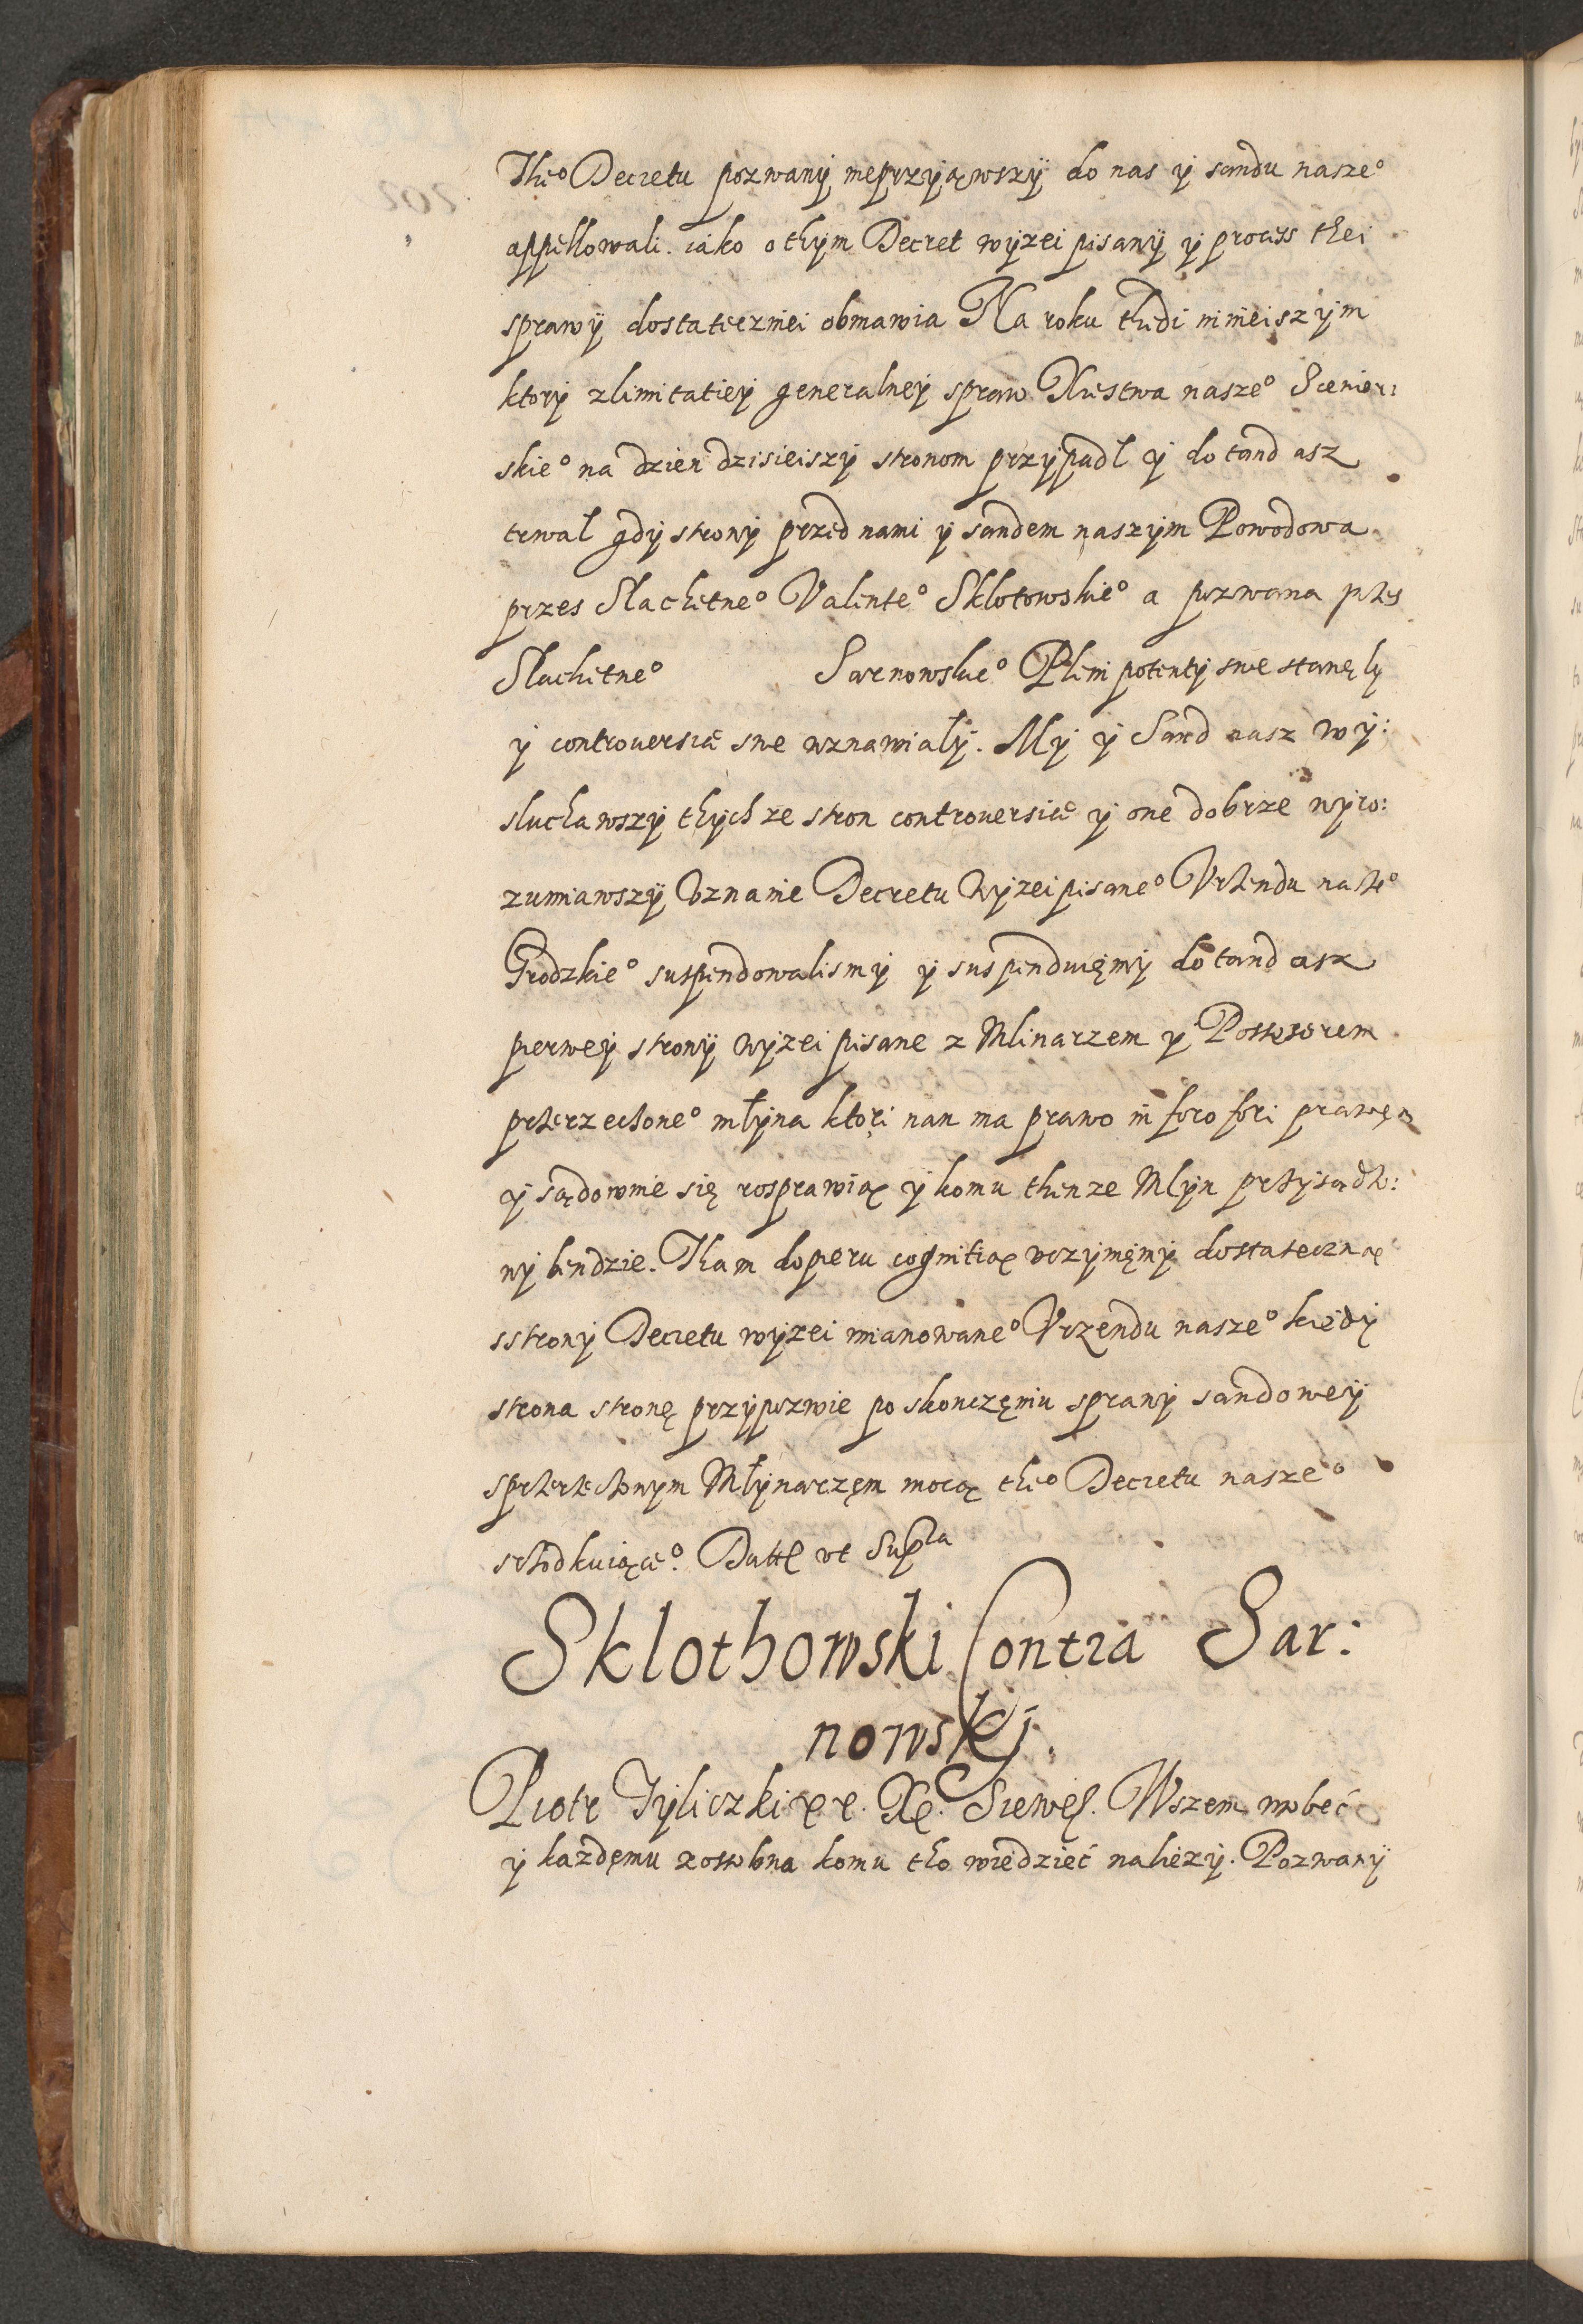 The⁰ Decretu pozwany nieprzyiąwszÿ do nas ÿ sandu nasze⁰
appellowali. iako o thÿm Decret wÿzei pisanÿ ÿ process thei
sprawÿ dostateczniei obmawia Na roku thedi ninieiszÿm
ktorÿ zlimitatieÿ generalneÿ spraw Xiestwa nasze⁰ Siewier:
skie⁰ na dzien dzisieiszÿ stronom przÿpadl ÿ dotand asz
trwal gdÿ stronÿ przed nami ÿ sandem naszÿm Powodowa
przes Slachetne⁰ Valente⁰ Sklotowskie⁰ a pozwana przes
Slachetne⁰ Sarnowskie⁰ Plenipotentÿ swe stanęlÿ
ÿ controuersie swe wznawialÿ. Mÿ ÿ Sand nasz wÿ:
sluchawszÿ thÿch ze stron controuersie ÿ one dobrze wÿro:
zumiawszÿ Vznanie Decretu Wÿzei pisane⁰ Vrzendu nasze⁰
Grodzkie⁰ suspendowalismÿ ÿ suspenduięmÿ dotand asz
pierweÿ stronÿ wÿzei pisane z Mlinarzem ÿ Possesorem
przerzeczone⁰ młÿna ktori nan ma prawo in foro fori prawęm
ÿ sądownie się rosprawią ÿ komu thenze Mlÿn przÿsądzo:
nÿ bendzie. Tham dopieru cognitią vczÿnięmÿ dostateczną
sstronÿ Decretu wÿzei mianowane⁰ Vrzendu nasze⁰ kiedÿ
strona stronę przÿpozwie po skonczęniu sprawÿ sandoweÿ
sprzerzeczonym Młÿnarzęm mocą the⁰ Decretu nasze⁰
srzodkuiące⁰. Datt vt Supra
Sklothowski Contra Sar:
nowskj.
Piotr Tÿliczki etc. Xę. Siewę. Wszem wobec
ÿ kazdęmu zossobna komu tho wiedziec nalezÿ. Pozwanÿ